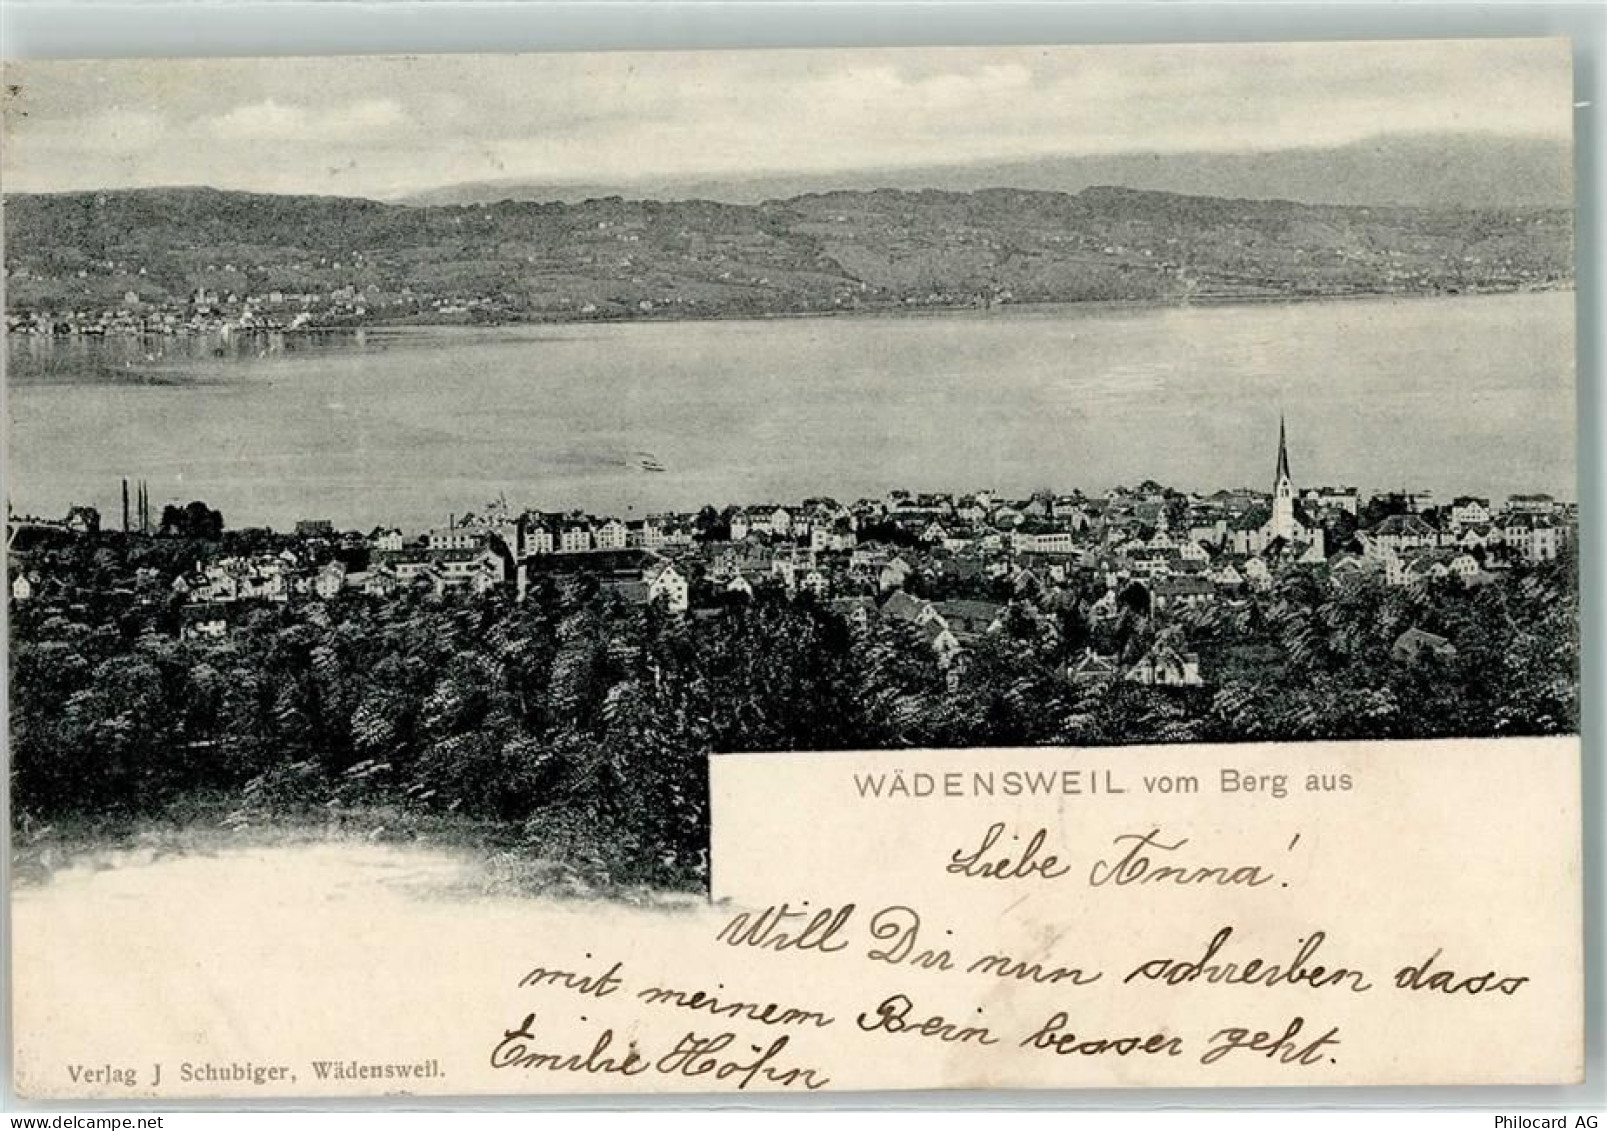 WÄDENSWEIL vom Berg aus
Liebe Anna!
Will Dir nun schreiben dass
mit meinem Bein besser geht.
Emilie Höhn
Verlag J Schubiger, Wädensweil.
www.delcampe.net
Philocard AG